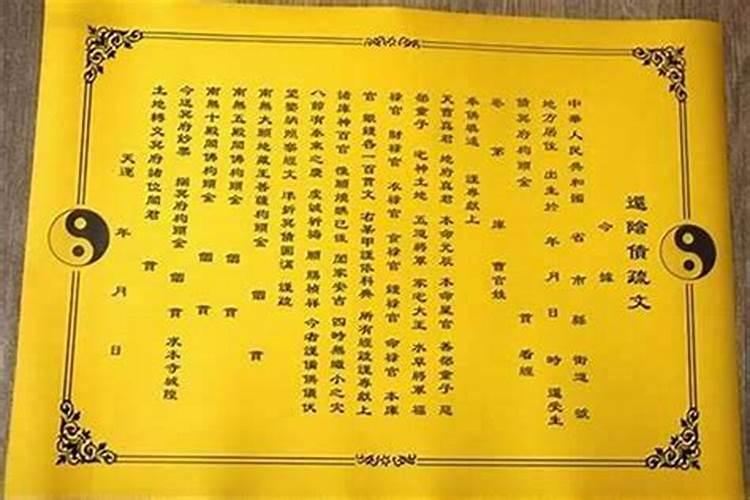 還陰債疏文
今據
中華人民共和國 省 市 縣 街道 號
地方居住 出生於 年 月 日 時 還受生
債冥府枸頭金 貫 看經
卷 第 庫 曹官姓
奉佛祭進 謹專獻上
天曹真君 地府真君 本命元辰 本命星官 善部童子 惡
部童子 宅神土地 五道將軍 家宅大王 水草將軍 福
祿官 財祿官 衣祿官 食祿官 錢祿官 命祿官 本庫
官 銀錢各一百貫文 右某甲謹依科典 所有經疏謹專獻上
諸庫神百官 惟願燒醮已後 闔家安吉 四時無纖小之災
八節有泰來之慶 虔誠祈禱 願賜禎祥 今者謹備俱儀伏
望鑒納照察經文 準折冥債圓滿 謹疏
南無大願地藏王菩薩枸頭金 個 貫
南無五殿閻佛枸頭金 個 貫
南無十殿閻佛枸頭金 個 貫
今送冥府鈔票 個 冥府枸頭金 個 貫 求本寺城隍
土地轉交冥府諸位閻君 貫
天運 年 月 日